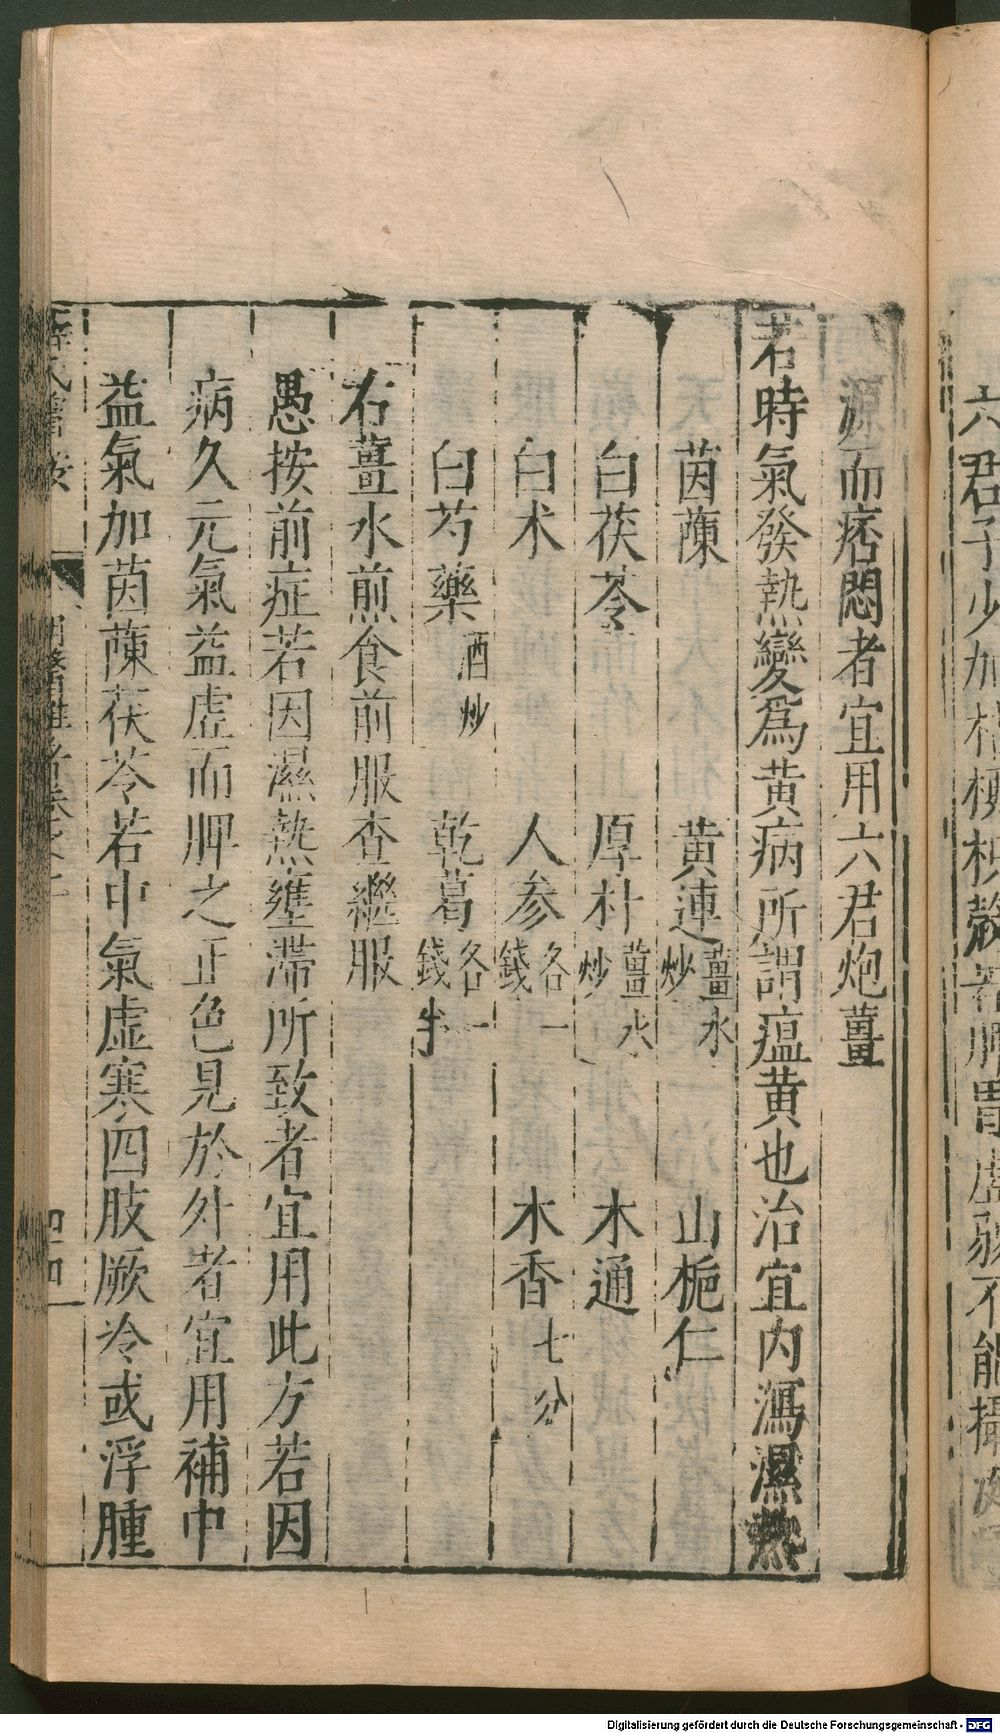 六君子少加桔梗枳殼若脾胃虛弱不能攝
源而痞悶者宜用六君炮薑
若時氣發熱變爲黄病所謂瘟黄也治宜内瀉濕熱
茵蔯 黄連薑水炒 山梔仁
白茯苓 厚朴薑水炒 木通
白术 人參各一錢 木香七分
白芍藥酒炒 乾葛各一錢半
右薑水煎食前服查繼服
愚按前症若因濕熱壅滯所致者宜用此方若因
病久元氣益虛而脾之正色見於外者宜用補中
益氣加茵蔯茯苓若中氣虛寒四肢厥冷或浮腫
薛氏醫按 明醫雜著卷之二 四四
Digitalisierung gefördert durch die Deutsche Forschungsgemeinschaft - DFG